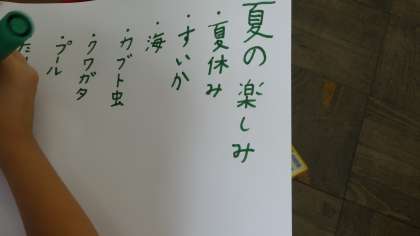 夏の楽しみ
・夏休み
・すいか
・海
・カブト虫
・クワガタ
・プール